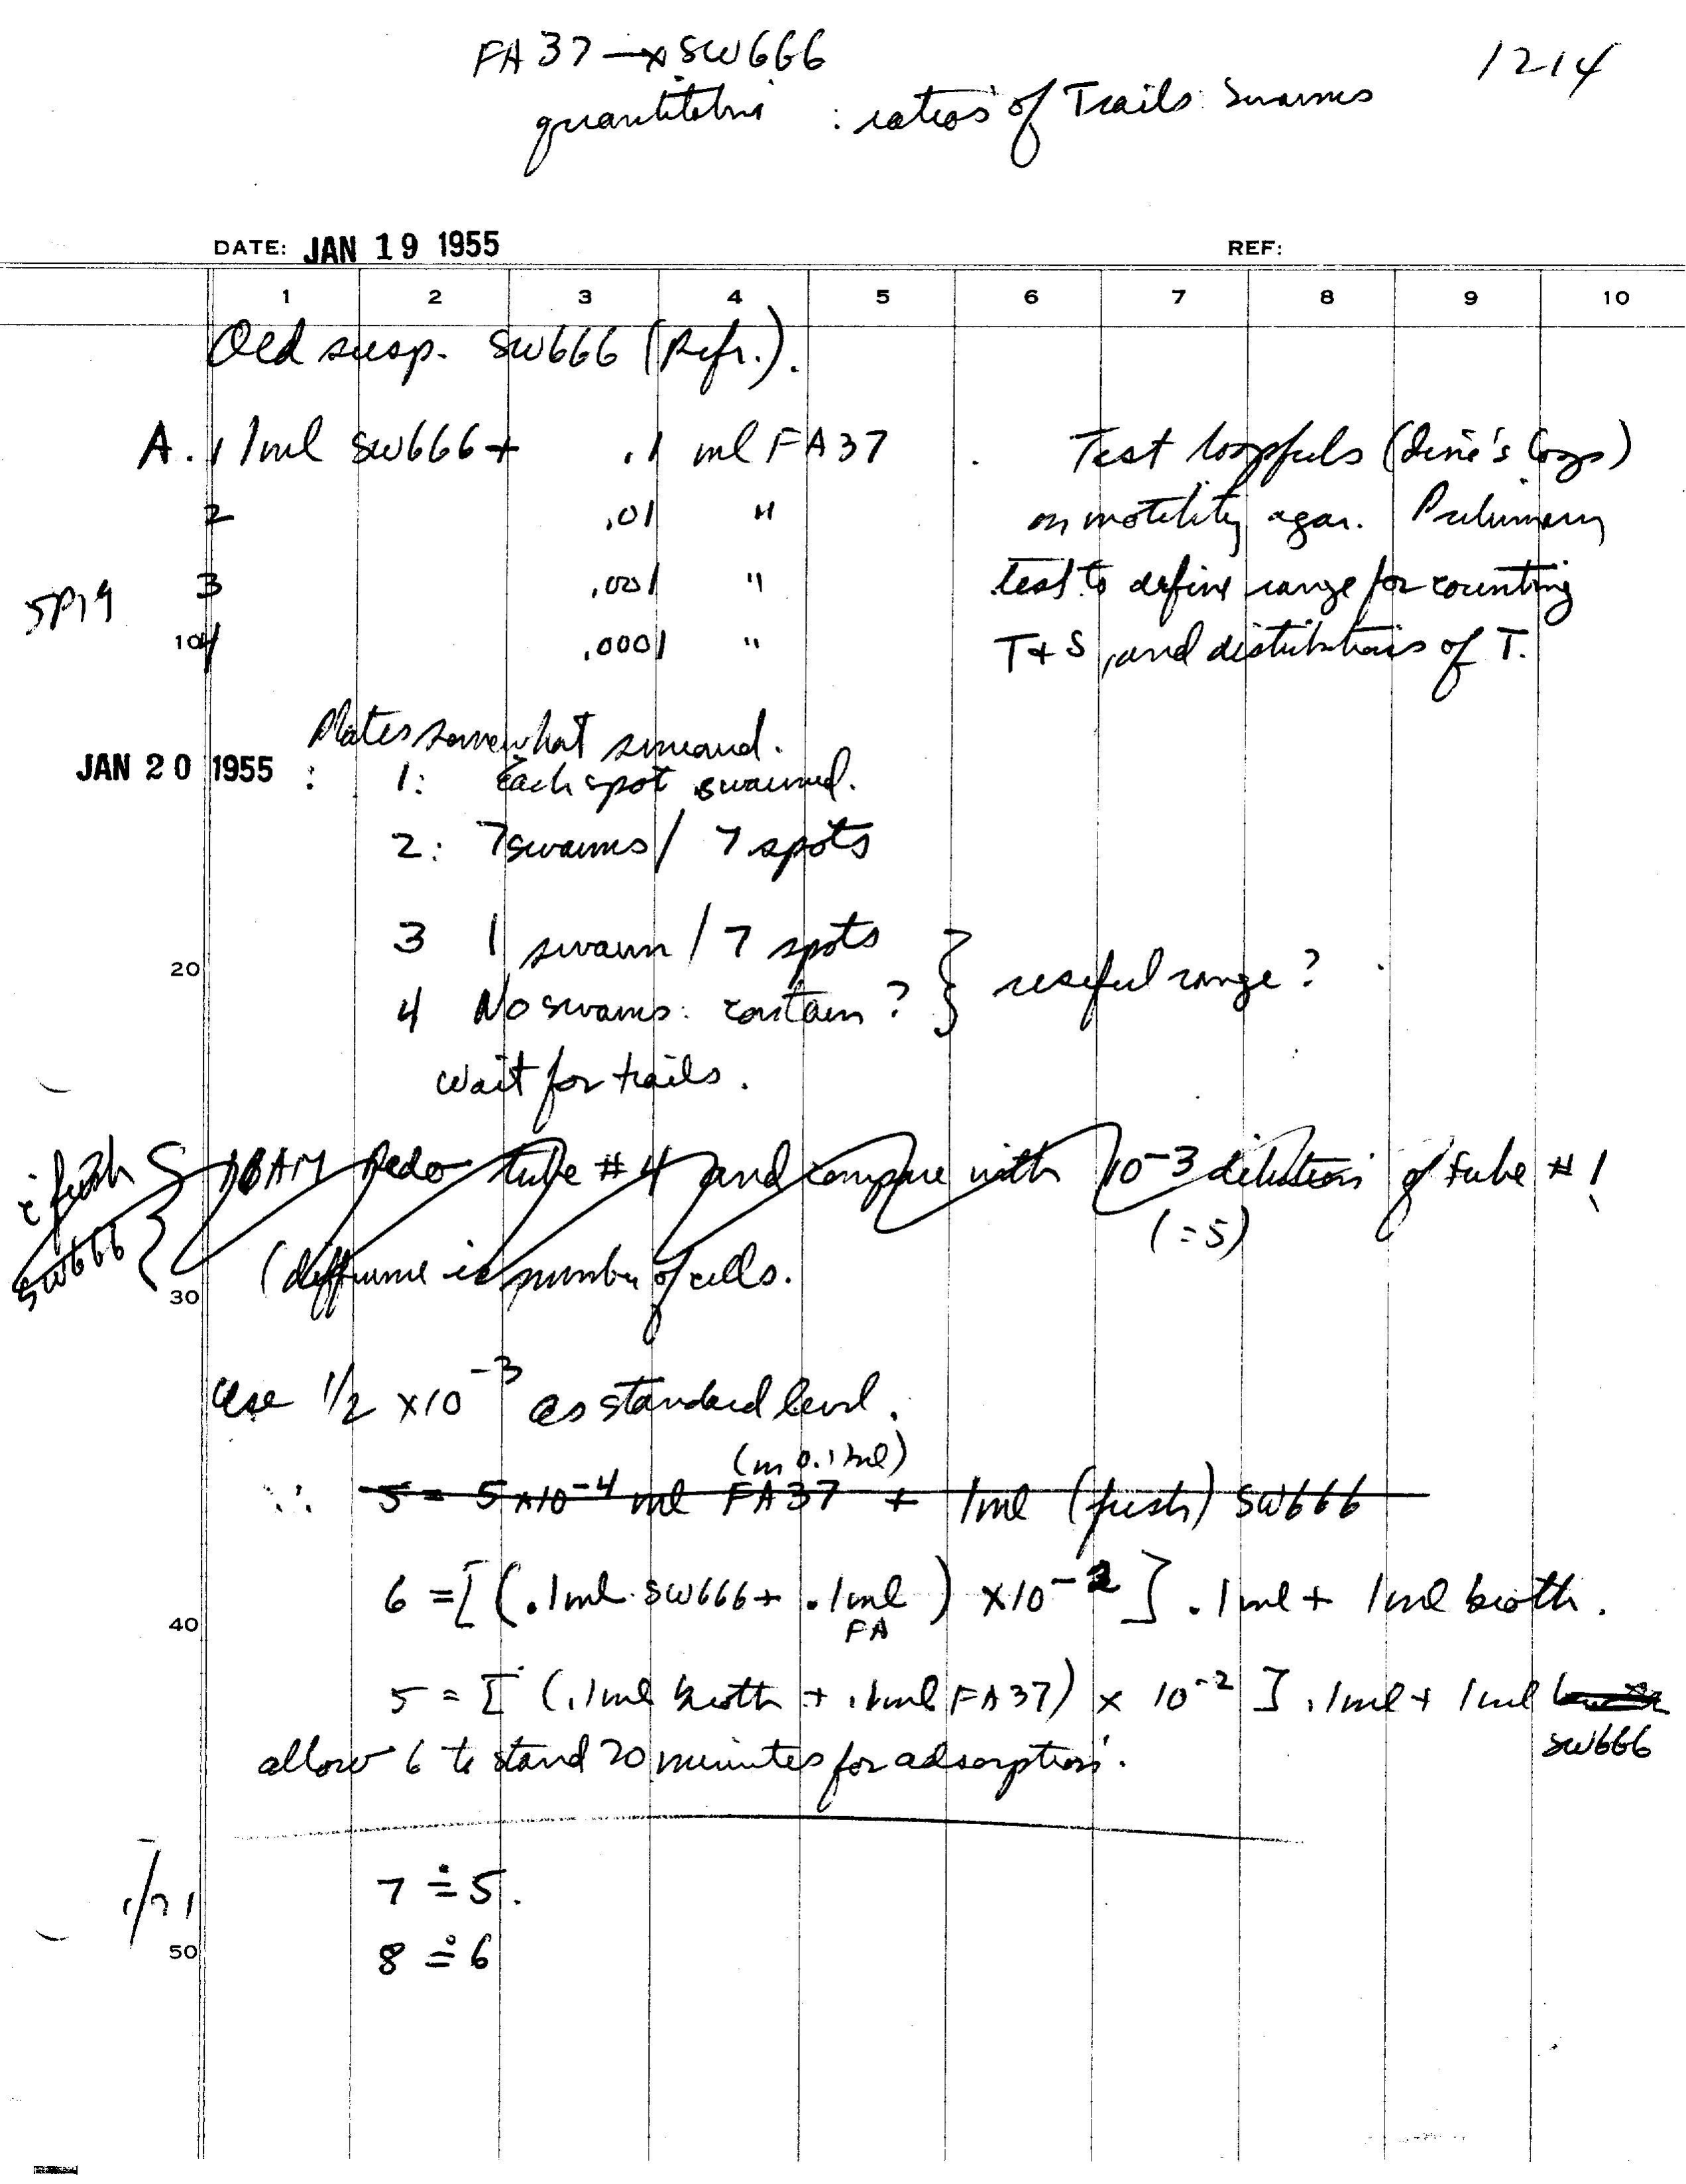 FA 37 —x SW666
1214
quantitative : ratios of Trails : Swarms
DATE: JAN 19 1955 REF:
1 2 3 4 5 6 7 8 9 10
Old susp. SW666 (Refr.).
A. 1 1ml SW666 + .1 ml FA37 . Test loopfuls (
2 .01 " on motility agar. Preliminary
3 .001 " test to define range for counting
5P19
10 4 .0001 " T + S, and distributions of T.
Plates somewhat smeared.
JAN 20 1955 : 1: Each spot swarmed.
2: 7 swarms / 7 spots
3 1 swarm / 7 spots
20 } useful range?
4 No swarms: contam?
wait for trails.
c̄ fresh SW666 { 10AM Redo tube #4 and compare with 10-3 dilution of tube #1
(=5)
(difference is number of cells.
30
Use 1/2 x10 -3 as standard level.
(in 0.1 ml)
∴ 5 = 5 x10-4 ml FA37 + 1ml (fresh) SW666
6 = [ (.1ml SW666 + .1ml FA ) x10-2 ] .1ml + 1ml broth.
40
5 = [ (.1ml broth + .1ml FA37) x 10-2 ] .1ml + 1ml
SW666
allow 6 to stand 20 minutes for adsorption.
1/21 7 ≐ 5.
50 8 ≐ 6